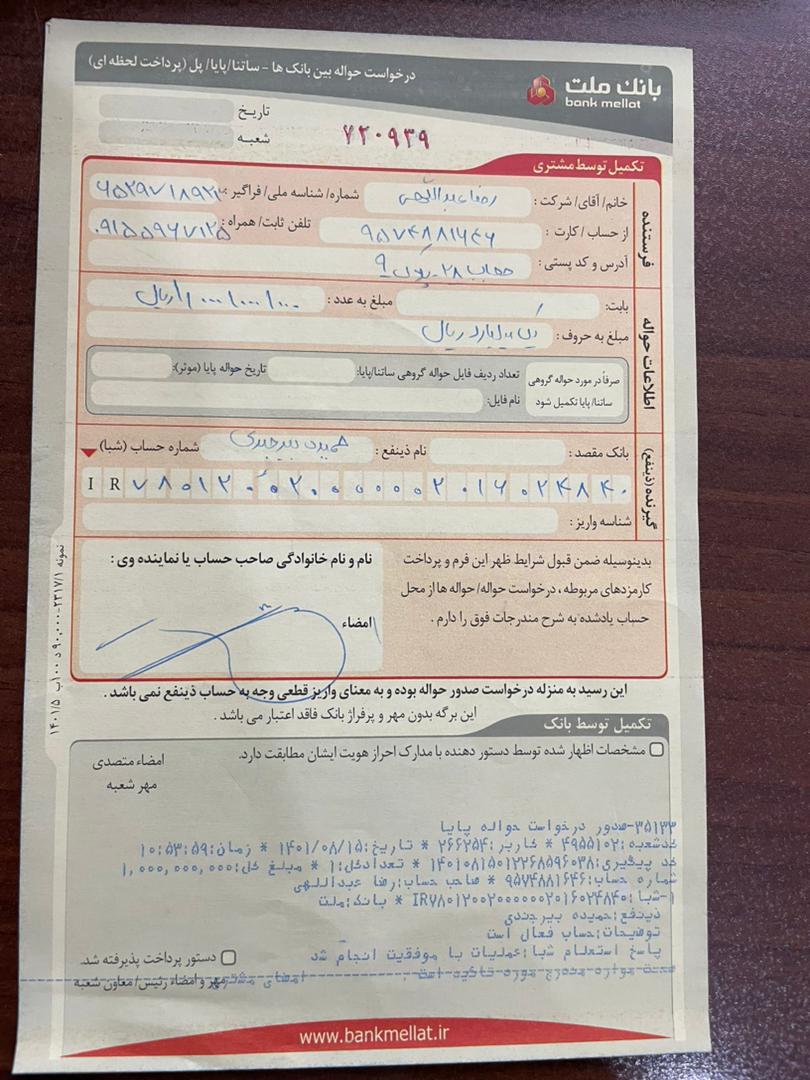 بانک ملت
bank mellat
درخواست حواله بین بانک ها - ساتنا/پایا/ پل (پرداخت لحظه ای)
تاریخ
شعبه
۷۲۰۹۳۹
تکمیل توسط مشتری
فرستنده
خانم/ آقای/ شرکت : رضا عبداللهی شماره/ شناسه ملی/ فراگیر :
از حساب / کارت : ۹۵۷۴۸۸۱۶۴۶ تلفن ثابت/ همراه : ۰۹۱۵۵۹۶۷۱۲۵
آدرس و کد پستی :
اطلاعات حواله
بابت: مبلغ به عدد : ۱,۰۰۰,۰۰۰,۰۰۰ ریال
مبلغ به حروف : یک میلیارد ریال
صرفاً در مورد حواله گروهی ساتنا/پایا تکمیل شود
تعداد ردیف فایل حواله گروهی ساتنا/پایا: تاریخ حواله پایا (موثر):
نام فایل:
گیرنده (ذینفع)
بانک مقصد : نام ذینفع : حمیده بیرجندی شماره حساب (شبا)
IR ۷۸۰۱۲۰۰۲۰۰۰۰۰۰۲۰۱۶۰۲۴۸۴۰
شناسه واریز :
بدینوسیله ضمن قبول شرایط ظهر این فرم و پرداخت
کارمزدهای مربوطه ، درخواست حواله/ حواله ها از محل
حساب یادشده به شرح مندرجات فوق را دارم .
نام و نام خانوادگی صاحب حساب یا نماینده وی :
امضاء
این رسید به منزله درخواست صدور حواله بوده و به معنای واریز قطعی وجه به حساب ذینفع نمی باشد .
این برگه بدون مهر و پرفراژ بانک فاقد اعتبار می باشد .
تکمیل توسط بانک
مشخصات اظهار شده توسط دستور دهنده با مدارک احراز هویت ایشان مطابقت دارد.
امضاء متصدی
مهر شعبه
۳۵۱۳۳-صدور درخواست حواله پایا
کدشعبه:۴۹۵۵۱۰۲ * کاربر:۲۶۶۲۵۴ * تاریخ:۱۴۰۱/۰۸/۱۵ * زمان:۱۰:۵۳:۵۹
کد پیگیری:۱۴۰۱۰۸۱۵۰۱۲۲۶۸۵۹۶۰۳۸ * تعدادکل:۱ * مبلغ کل:۱,۰۰۰,۰۰۰,۰۰۰
شماره حساب:۹۵۷۴۸۸۱۶۴۶ * صاحب حساب:رضا عبداللهی
۱-شبا:IR۷۸۰۱۲۰۰۲۰۰۰۰۰۰۲۰۱۶۰۲۴۸۴۰ * بانک:ملت
ذینفع:حمیده بیرجندی
توضیحات:حساب فعال است
پاسخ استعلام شبا:عملیات با موفقیت انجام شد
دستور پرداخت پذیرفته شد.
مهر و امضاء رئیس/ معاون شعبه
www.bankmellat.ir